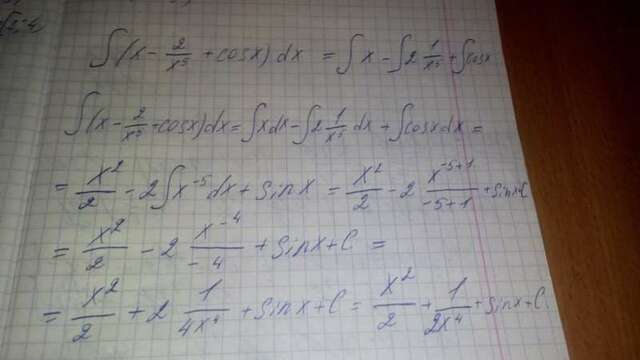 ∫(x - 2/x⁵ + cosx)dx = ∫x - ∫2 1/x⁵ + ∫cosx
∫(x - 2/x⁵ + cosx)dx = ∫xdx - ∫2 1/x⁵ dx + ∫cosxdx =
= x²/2 - 2∫x⁻⁵dx + sinx = x²/2 - 2 x⁻⁵⁺¹/-5+1 + sinx+C
= x²/2 - 2 x⁻⁴/-4 + sinx+C =
= x²/2 + 2 1/4x⁴ + sinx+C = x²/2 + 1/2x⁴ + sinx+C.